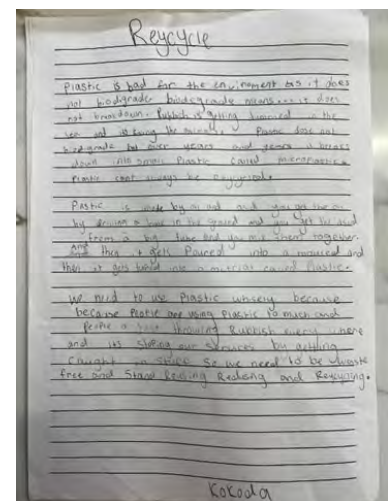 Reycycle
Plastic is bad for the enviroment bas it does
not biodigrade biodegrade means.... it does
not breakdown. Rubbish is getting dummed in the
sea and is the Plastic dose not
biodigrade but over years and years it breaks
down into small Plastic called microplastic.
Plastic cant always be recycled.
Plastic is made by oil and and you get the oil
by drilling a hole in the ground and you get the
from a you mix them together.
and then it gets Poured into a and
then it gets turned into a material called Plastic.
We need to use Plastic because
because People are using Plastic to much and
People a throwing Rubbish every where
and its our by getting
caught in Stuff So we need to be waste
free and Reusing and
Kokoda